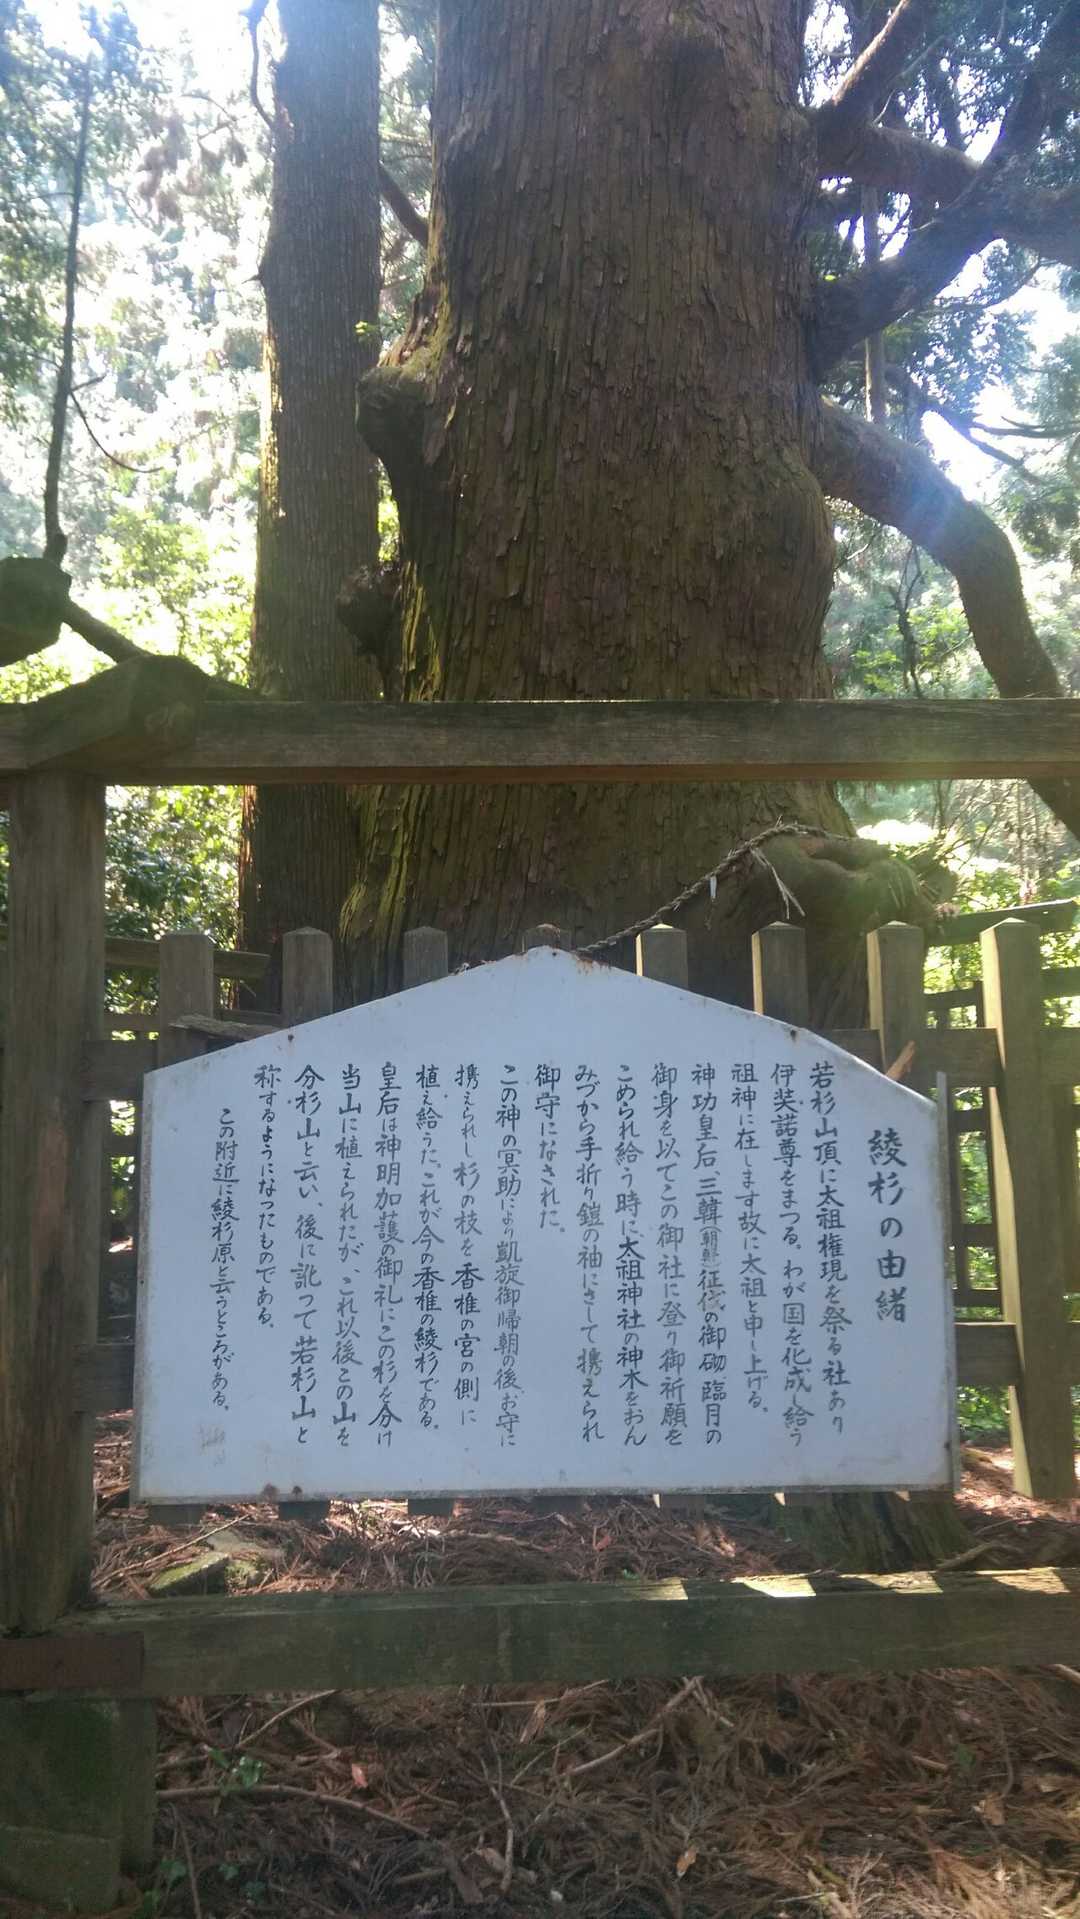 綾杉の由緒
若杉山頂に太祖権現を祭る社あり
伊奘諾尊をまつる。わが国を化成し給う
祖神に在します故に太祖と申し上げる。
神功皇后、三韓(朝鮮)征伐の御砌、臨月の
御身を以てこの御社に登り御祈願を
こめられ給う時に、太祖神社の神木をおん
みづから手折り鎧の袖にさして携えられ
御守になされた。
この神の冥助により凱旋御帰朝の後、お守に
携えられし杉の枝を香椎の宮の側に
植え給うた。これが今の香椎の綾杉である。
皇后は神明加護の御礼にこの杉を分け
当山に植えられたが、これ以後この山を
分杉山と云い、後に訛つて若杉山と
称するようになったものである。
この附近に綾杉原と云うところがある。